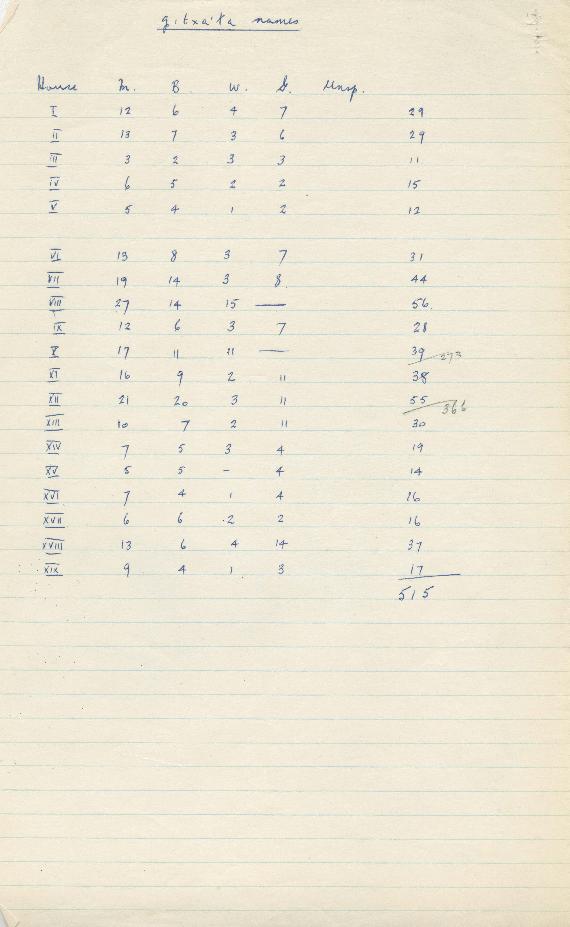 gitxa·ła names
House M. B. W. G. Unsp.
I 12 6 4 7 29
II 13 7 3 6 29
III 3 2 3 3 11
IV 6 5 2 2 15
V 5 4 1 2 12
VI 13 8 3 7 31
VII 19 14 3 8 44
VIII 27 14 15 — 56
IX 12 6 3 7 28
X 17 11 11 — 39 273
XI 16 9 2 11 38
XII 21 20 3 11 55 366
XIII 10 7 2 11 30
XIV 7 5 3 4 19
XV 5 5 – 4 14
XVI 7 4 1 4 16
XVII 6 6 2 2 16
XVIII 13 6 4 14 37
XIX 9 4 1 3 17
515